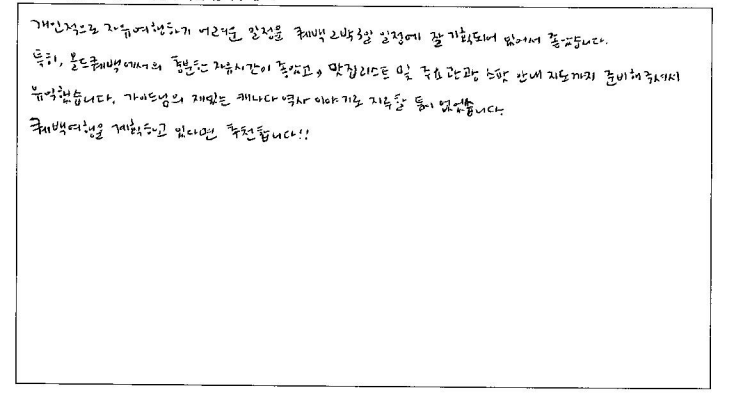 개인적으로 자유여행하기 어려운 일정을 퀘백 2박3일 일정에 잘 기획되어 있어서 좋았습니다.
특히, 올드퀘백에서의 충분한 자유시간이 좋았고, 맛집리스트 및 주요관광 스팟 안내 지도까지 준비해주셔서
유익했습니다. 가이드님의 재밌는 캐나다 역사 이야기로 지루할 틈이 없었습니다.
퀘백여행을 계획하고 있다면 추천합니다!!